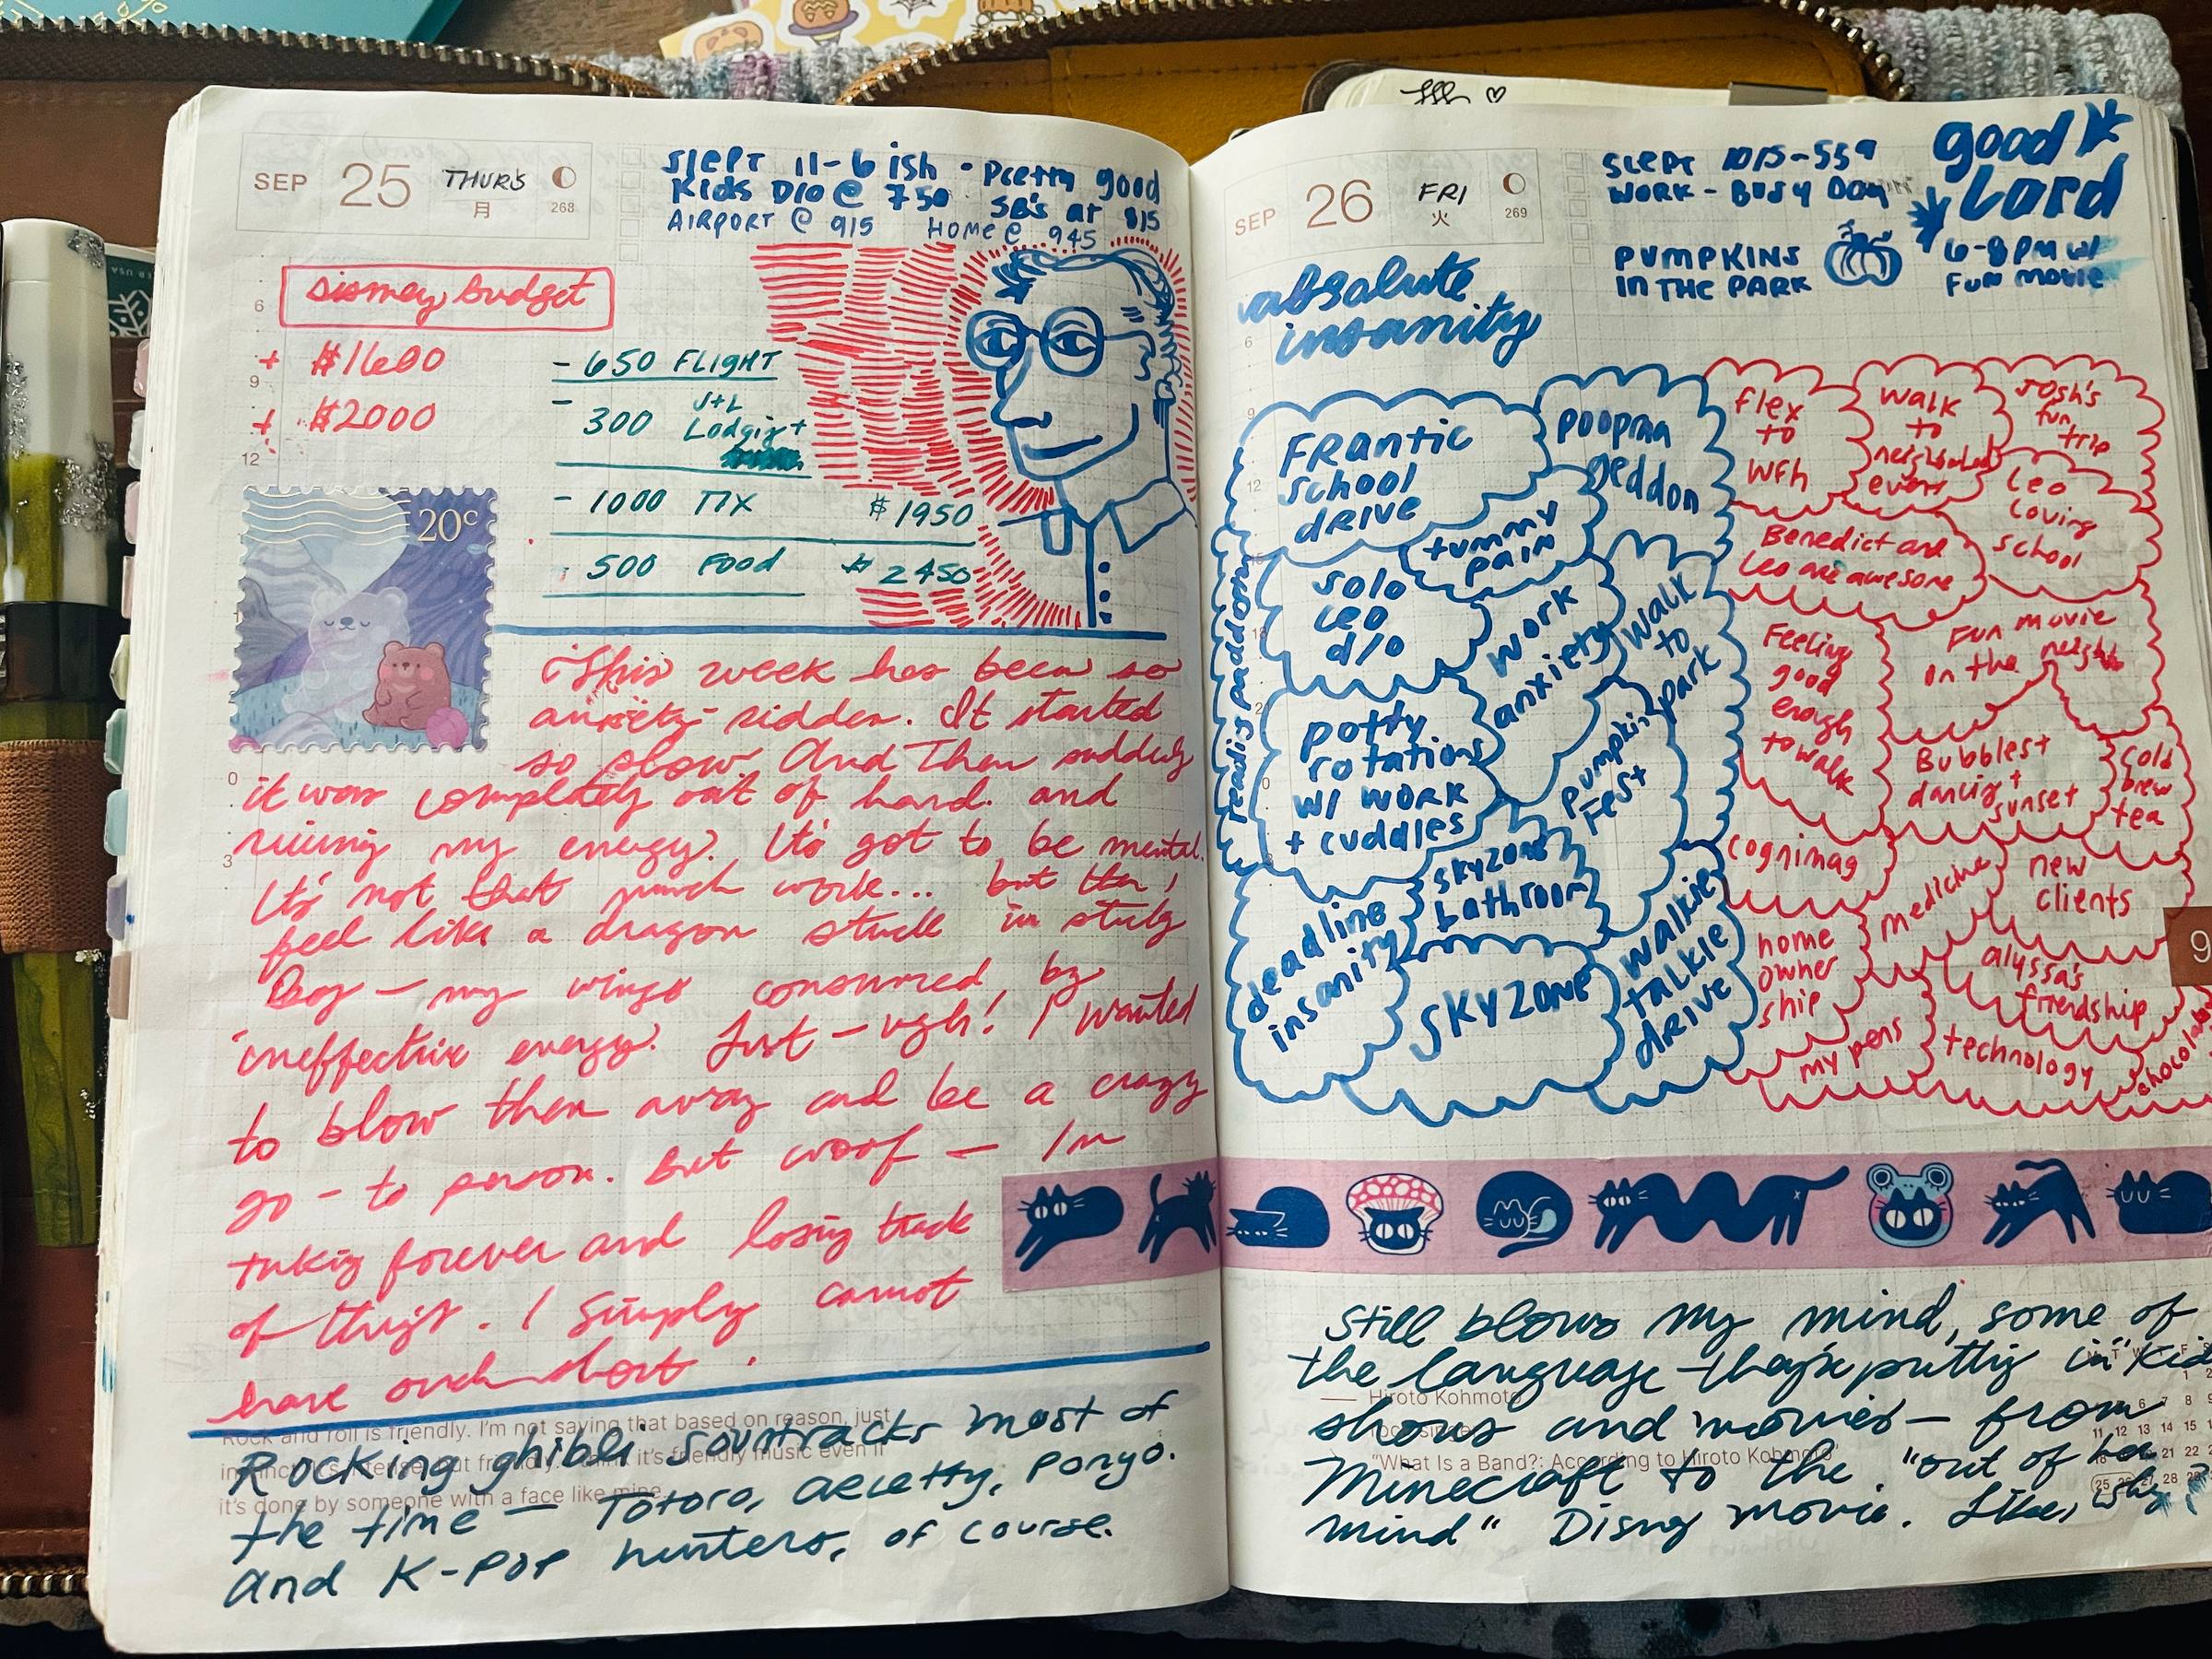 SEP 25 THURS 月 268
Slept 11-6 ish · Pretty good
Kids D/O @ 750 SB's at 815
AIRPORT @ 915 HOME @ 945
disney budget
+ $1600
+ $2000
- 650 FLIGHT
- 300 J+L Lodging +
- 1000 TIX $1950
- 500 FOOD $2450
20c
This week has been so
anxiety-ridden. It started
so slow. And then suddenly
it was completely out of hand. and
my energy. It's got to be mental.
It's not that much work... but then I
feel like a dragon stuck in sticky
Bog — my wings consumed by
ineffective energy. Just — ugh! I wanted
to blow them away and be a crazy
go-to person. But woof — I'm
taking forever and losing track
of things. I simply cannot
have
6
9
12
0
3
Rock and roll is friendly. I'm not saying that based on reason, just
it's friendly music even if
it's done by someone with a face like mine.
Rocking ghibli sountracks most of
the time — Totoro, Arietty, Ponyo.
and K-Pop hunters, of course.
SEP 26 FRI 火 269
Slept 1015-559
WORK - BUSY DAY
good Lord
PUMPKINS
IN THE PARK
6-8PM w/
FUN MOVIE
absolute
insanity
6
9
12
FRantic
school
drive
poopma
geddon
tummy
pain
solo
Leo
d/o
work
anxiety
walk
to
park
potty
rotations
w/ work
+ cuddles
pumpkin
Fest
skyzone
bathroom
deadline
insanity
SKYZONE
walkie
talkie
drive
flex
to
wfh
walk
to
neighborhood
event
Josh's
fun
trip
Leo
Loving
school
Benedict and
Leo are awesome
Feeling
good
enough
to walk
Fun movie
in the neighb
Bubbles +
dancing +
sunset
cold
brew
tea
cognimag
medicine
new
clients
home
owner
ship
alyssa's
friendship
my pens
technology
9
Still blows my mind, some of
the language they're putting in "kid
shows and movies — from
Minecraft to the "out of her
mind" Disney movie. Like, why?
— Hiroto Kohmoto
"What Is a Band?: According to Hiroto Kohmoto"